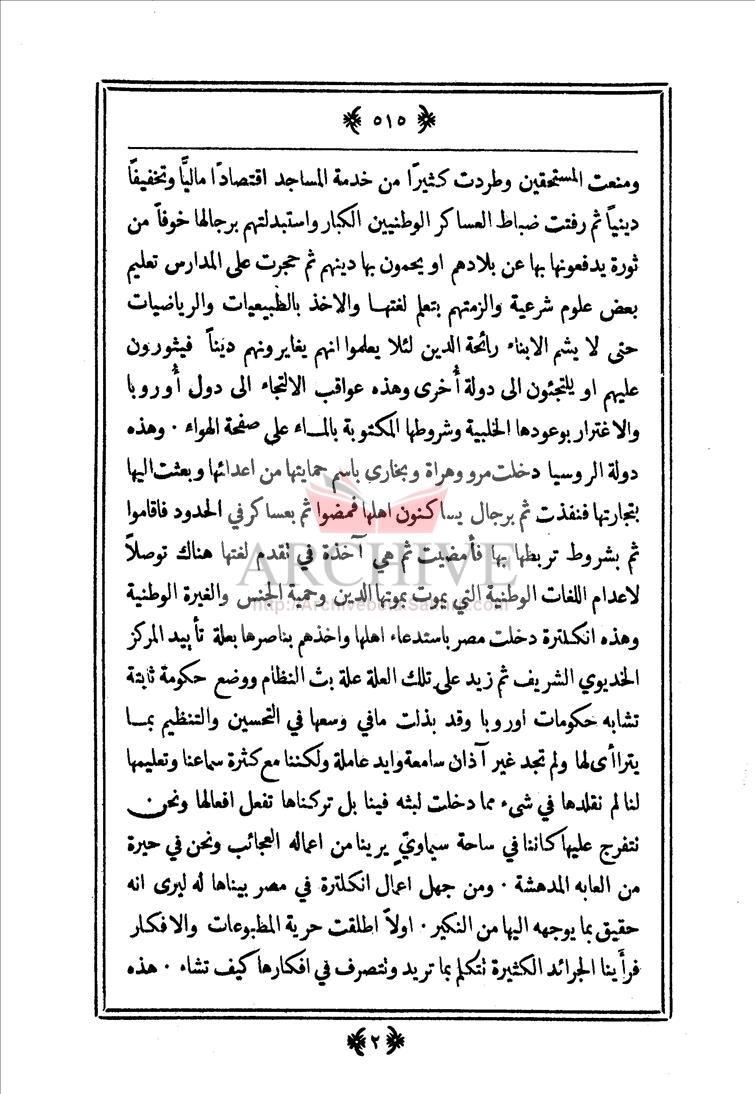 ٥١٥
ومنعت المستحقين وطردت كثيرًا من خدمة المساجد اقتصادًا ماليًّا وتخفيفًا
دينيًا ثم رفتت ضباط العساكر الوطنيين الكبار واستبدلتهم برجالها خوفًا من
ثورة يدفعونها بها عن بلادهم او يحمون بها دينهم ثم حجرت على المدارس تعليم
بعض علوم شرعية والزمتهم بتعلم لغتهـا والاخذ بالطبيعيات والرياضيات
حتى لا يشم الابناء رائحة الدين لئلا يعلموا انهم يغايرونهم دينًا فيثورون
عليهم او يلتجئون الى دولة أُخرى وهذه عواقب الالتجاء الى دول أُوروبا
والاغترار بوعودها الخلبية وشروطها المكتوبة بالمـاء على صفحة الهواء ٠ وهذه
دولة الروسيا دخلت مرو وهراة وبخارى باسم حمايتها من اعدائها وبعثت اليها
بتجارتها فنفذت ثم برجال يساكنون اهلها فمضوا ثم بعساكر في الحدود فاقاموا
ثم بشروط تربطها بها فأمضيت ثم هي آخذة في تقدم لغتها هناك توصلاً
لاعدام اللغات الوطنية التي يموت بموتها الدين وحمية الجنس والغيرة الوطنية
وهذه انكلترة دخلت مصر باستدعاء اهلها واخذهم بناصرها بعلة تأييد المركز
الخديوي الشريف ثم زيد على تلك العلة علة بث النظام ووضع حكومة ثابتة
تشابه حكومات اوروبا وقد بذلت مافي وسعها في التحسين والتنظيم بمـا
يتراأى لها ولم تجد غير آذان سامعة وايد عاملة ولكننا مع كثرة سماعنا وتعليمها
لنا لم نقلدها في شيء مما دخلت لبثه فينا بل تركناها تفعل افعالها ونحن
نتفرج عليها كاننا في ساحة سيماويّ يرينا من اعماله العجائب ونحن في حيرة
من العابه المدهشة ٠ ومن جهل اعمال انكلترة في مصر بيناها له ليرى انه
حقيق بما يوجهه اليها من النكير ٠ اولاً اطلقت حرية المطبوعات والافكار
فرأَينا الجرائد الكثيرة تتكلم بما تريد وتتصرف في افكارها كيف تشاء ٠ هذه
٢
ARCHIVE